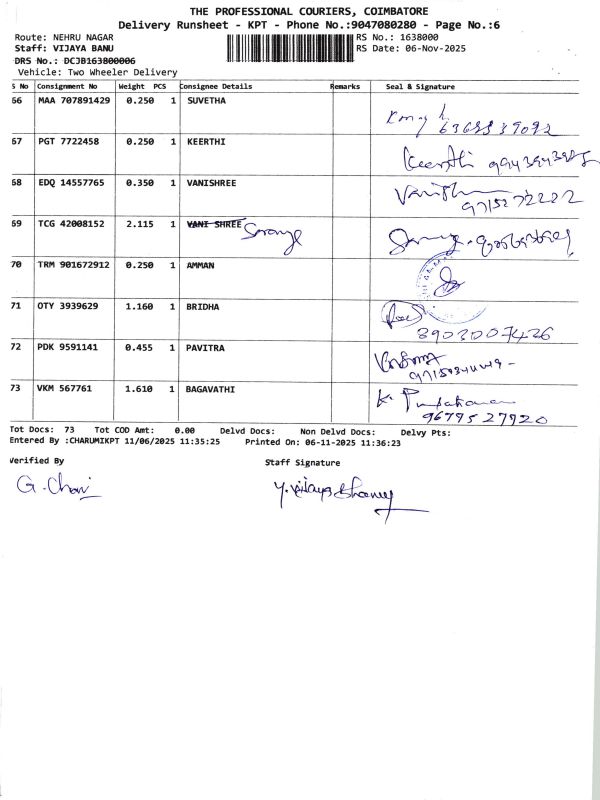 THE PROFESSIONAL COURIERS, COIMBATORE
Delivery Runsheet - KPT - Phone No.:9047080280 - Page No.:6
Route: NEHRU NAGAR RS No.: 1638000
Staff: VIJAYA BANU RS Date: 06-Nov-2025
DRS No.: DCJB163800006
Vehicle: Two Wheeler Delivery
S No Consignment No Weight PCS Consignee Details Remarks Seal & Signature
66 MAA 707891429 0.250 1 SUVETHA
67 PGT 7722458 0.250 1 KEERTHI Keerthi
68 EDQ 14557765 0.350 1 VANISHREE 9715272222
69 TCG 42008152 2.115 1 VANI SHREE
70 TRM 901672912 0.250 1 AMMAN
71 OTY 3939629 1.160 1 BRIDHA 8903007426
72 PDK 9591141 0.455 1 PAVITRA
73 VKM 567761 1.610 1 BAGAVATHI K 9679527920
Tot Docs: 73 Tot COD Amt: 0.00 Delvd Docs: Non Delvd Docs: Delvy Pts:
Entered By :CHARUMIKPT 11/06/2025 11:35:25 Printed On: 06-11-2025 11:36:23
Verified By Staff Signature
G. Y. Vijaya Bhanu